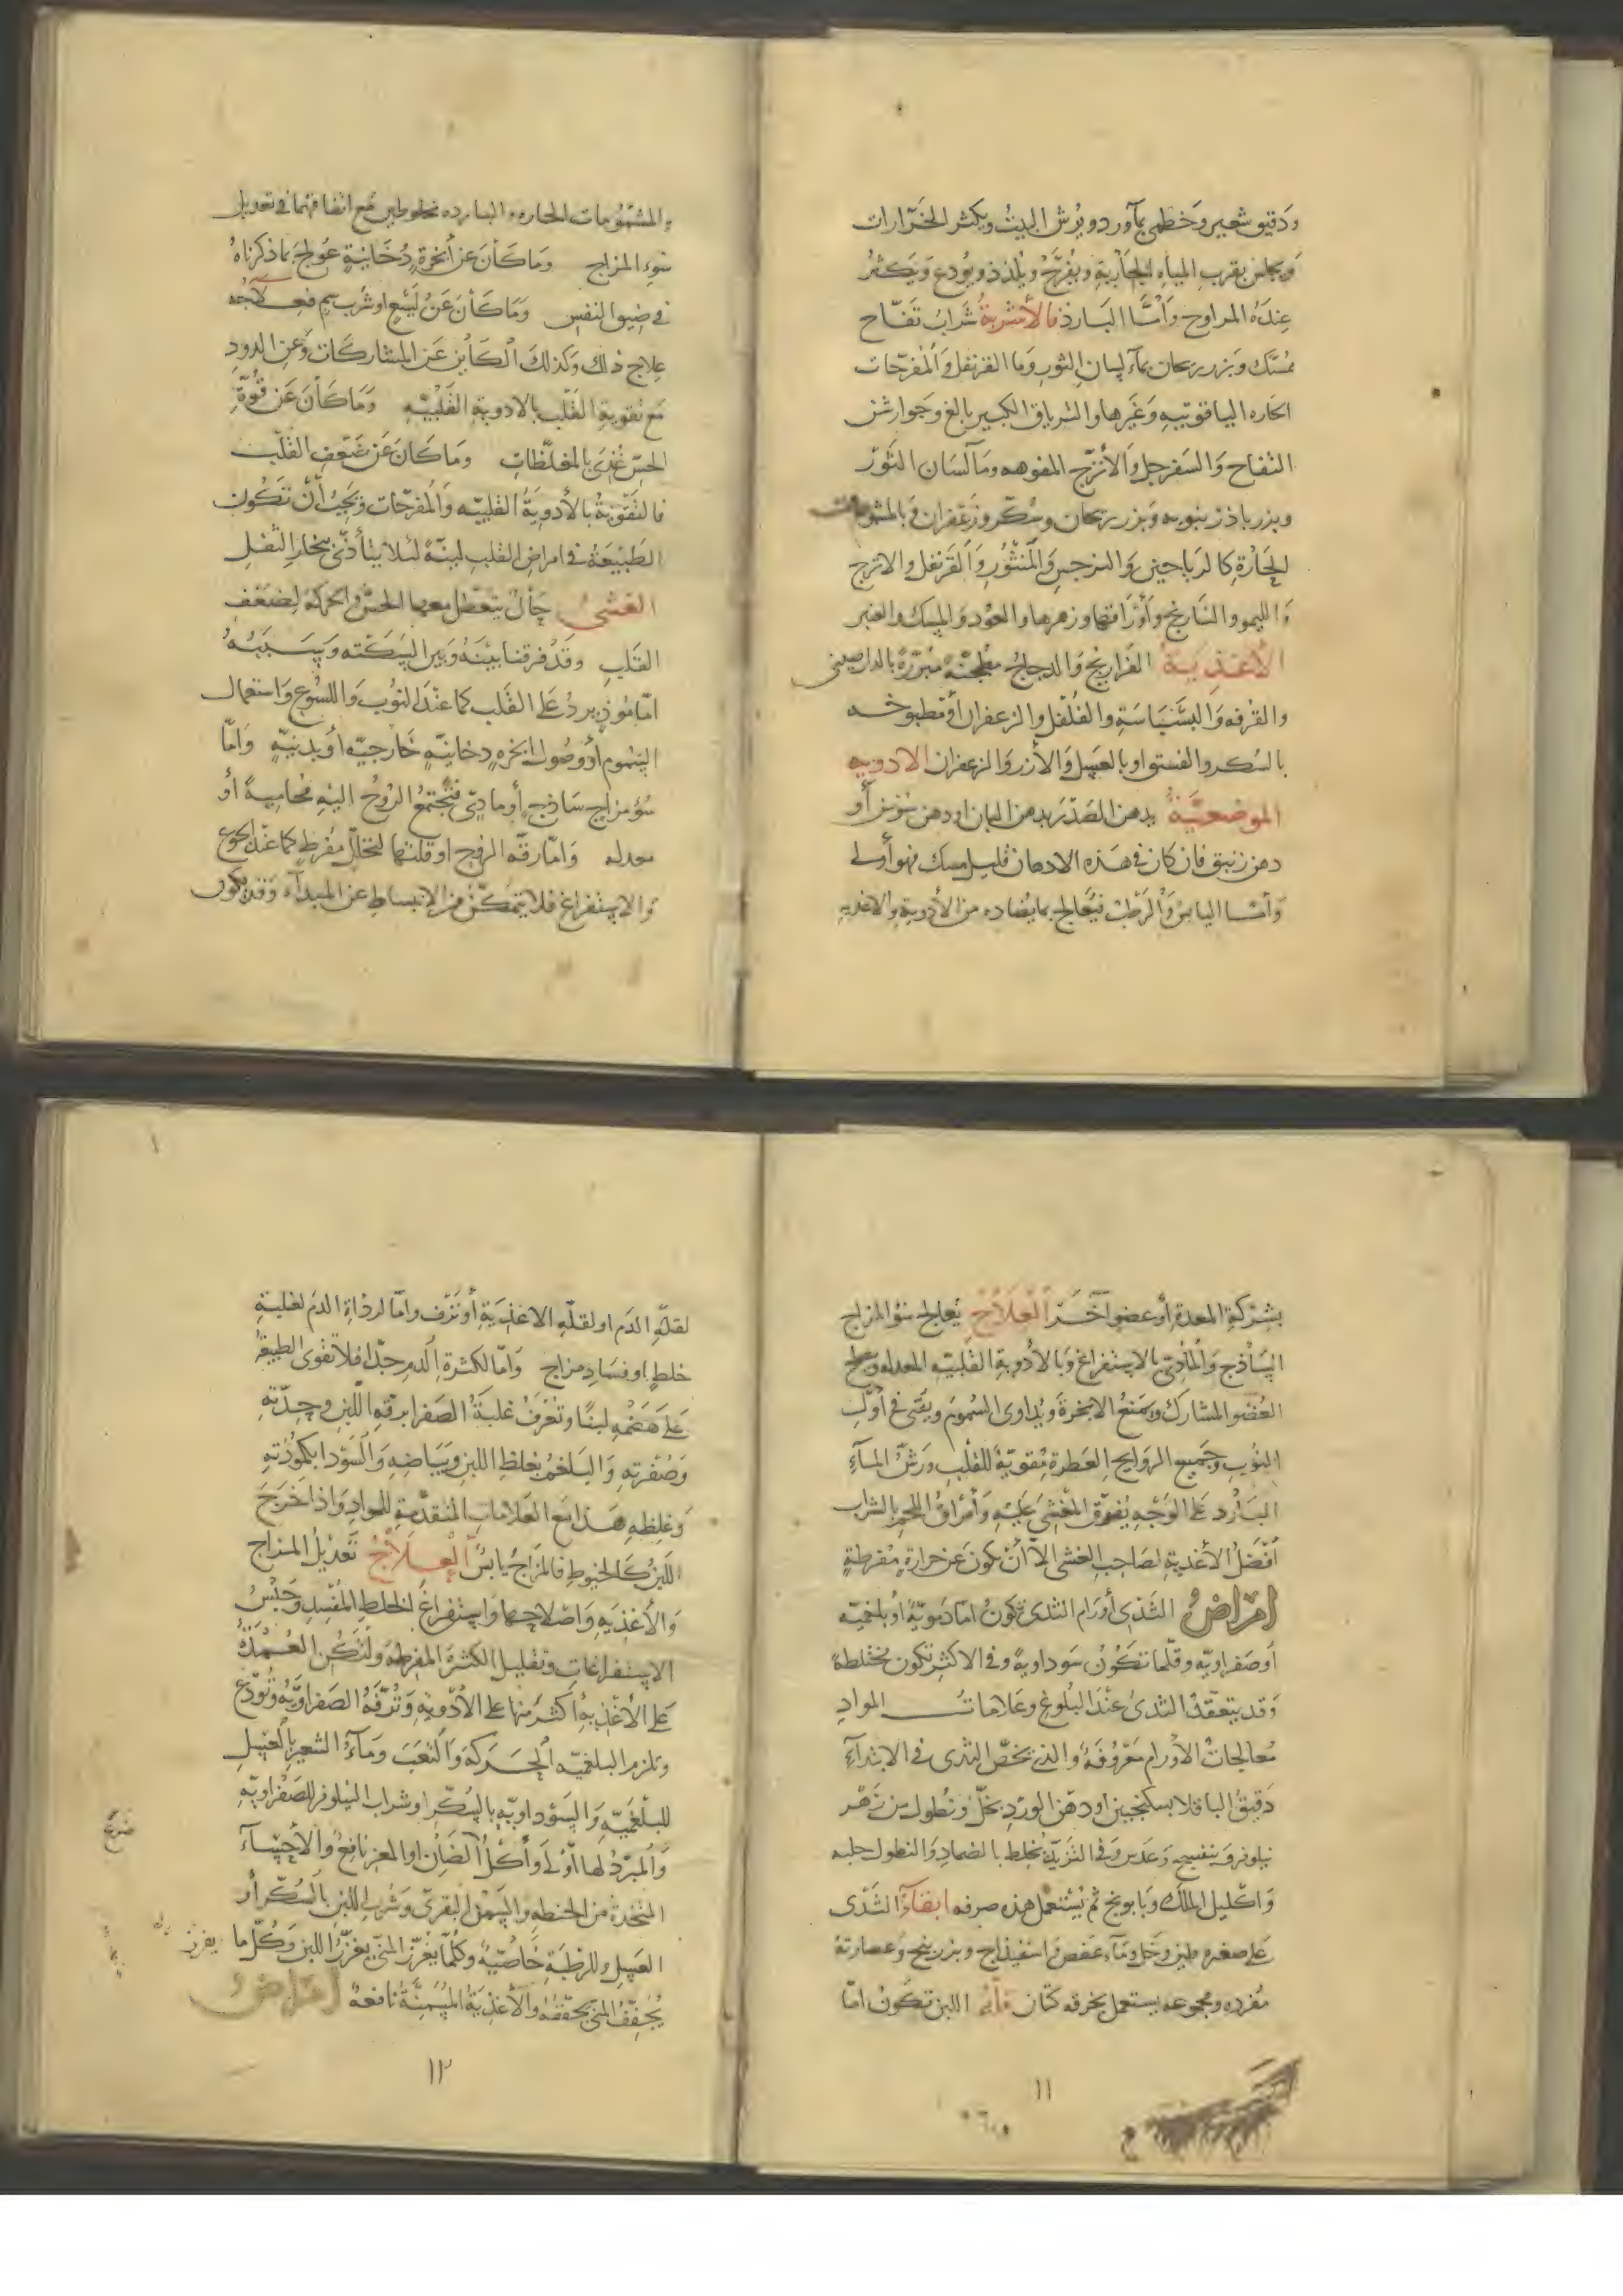 ودقيق شعير وخطمى بمآورد ويرش البيت ويكثر الخرّارات
ويجلس بقرب المياه الجارية ويفرّح ويلذذ ويودع ويكثر
عنده المراوح وأمّا البارد فالأشربة شراب تفّاح
ممسّك وبزر ريحان بمآء لسان الثور وما القرنفل والمفرّحات
الحاره الياقوتيه وغيرها والترياق الكبير بالغ وجوارشن
التفاح والسفرجل والأترّج المفوهه ومآ لسان الثور
وبزر باذرنبويه وبزر ريحان وسكّر وزعفران وبالمشمومات
الحارة كالرياحين والنرجس والمنثور والقرنفل والاترج
والليمو والنارنج وأوراقها وزهرها والعود والمسك والعنبر
الأغذية الفراريج والدجاج مطجنة مبزرة بالدارصينى
والقرفه والبسباسة والفلفل والزعفران أو مطبوخه
بالسكر والفستق او بالعسل والأزر والزعفران الادويه
الموضعيّة يدهن الصدر بدهن البان او دهن سوسن أو
دهن زنبق فان كان فى هذه الادهان قليل مسك فهو أولى
وأمّا اليابس والرطب فيعالج بما يضاده من الأدوية والاغذيه
والمشمومات الحاره والبارده مخلوطين مع اتفاقهما فى تعديل
سوء المزاج وما كان عن أبخرة دخانية عولج بما ذكرناه
فى ضيق النفس وما كان عن لسع او شرب سم فعلاجه
علاج ذلك وكذلك الكاين عن المشاركات وعن الدود
مع تقوية القلب بالادوية القلبيه وما كان عن قوّة
الحسّ غذى بالمغلّظات وما كان عن ضعف القلب
فالتقوية بالأدوية القلبيّه والمفرّحات ويجب أن تكون
الطبيعة فى امراض القلب لينة لئلا يتأذّى ببخار الثفل
الغشى حال يتعطل معها الحسّ والحركة لضعف
القلب وقد فرقنا بينه وبين السكته وسببه
امّا موذ يرد على القلب كما عند النوب واللسوع واستعمال
السموم أو وصول ابخره دخانيّه خارجيّه أو بدنيّه وامّا
سؤ مزاج ساذج أو مادىّ فتجتمع الروح اليه محامية أو
وامّا رقّة الروح او قلتها لتحلّل مفرط كما عند الجوع
والاستفراغ فلا يتمكّن من الانبساط عن المبدآء وقد يكون
بشركة المعدة أو عضو آخر العلاج يعالج سؤ المزاج
السّاذج والمادىّ بالاستفراغ وبالأدوية القلبيّه المعدله ويصلح
العضو المشارك ويمنع الابخرة ويداوى السموم ويقى فى أول
النوب وجميع الروايح العطرة مقوّية للقلب ورشّ المآء
البارد على الوجه يفوّق المغشى عليه وأمراق اللحم بالشراب
أفضل الأغذية لصاحب الغشى الاّ أن يكون عن حرارة مفرطة
امراض الثدى أورام الثدى تكون امّا دمويّة او بلغميّه
أو صفراويّه وقلّما تكون سوداوية وفى الاكثر تكون مختلطة
وقد يتعقّد الثدى عند البلوغ وعلامات المواد
معالجات الأورام معروفة والذى يخصّ الثدى فى الابتدآء
دقيق الباقلا بسكنجبين او دهن الورد بخلّ ونطول من زهر
نيلوفر وبنفسج وعدس وفى التزيّد يخلط بالضماد والنطول حلبه
واكليل الملك وبابونج ثمّ يستعمل هذه صرفه ابقآء الثدى
على صغره طين وخل ومآء عفص واسفيذاج وبزر بنج وعصارته
مفرده ومجموعه يستعمل بخرقه كتان قلّة اللبن تكون امّا
١١
لقلّة الدم او لقلّه الاغذية أو نزف وامّا لردآة الدم لغلبة
خلط او فساد مزاج وامّا لكثرة الدم جدّا فلا تقوى الطبيعة
على هضمه لبنًا وتعرف غلبة الصفرا برقه اللبن وحدّته
وصفرته والبلغم بغلظ اللبن وبياضه والسودا بكمودته
وغلظه هذا مع العلامات المتقدّمة للمواد واذا خرج
اللبن كالخيوط فالمزاج يابس العلاج تعديل المزاج
والأغذيه واصلاحها واستفراغ الخلط المفسد وحبس
الاستفراغات وتقليل الكثرة المفرطة ولتكن العمدة
على الأغذية أكثر منها على الأدوية وترفّه الصفراويّة وتودّع
وتلزم البلغميّه الحركة والتعب ومآء الشعير بالعسل
للبلغميّه والسوداويّه بالسكّر او شراب النيلوفر للصفراويّه
والمبرّد لها أولى وأكل الضان او المعز نافع والأحسآء
المتخذة من الحنطه والسمن البقرىّ وشرب اللبن بالسكّر أو
العسل وللرطبة خاصّية وكلّما يغزّر المنى يغزّر اللبن وكلّما يغزر
يجفّف المنى يجفّفه والأغذية المسمّنة نافعة امراض
١٢